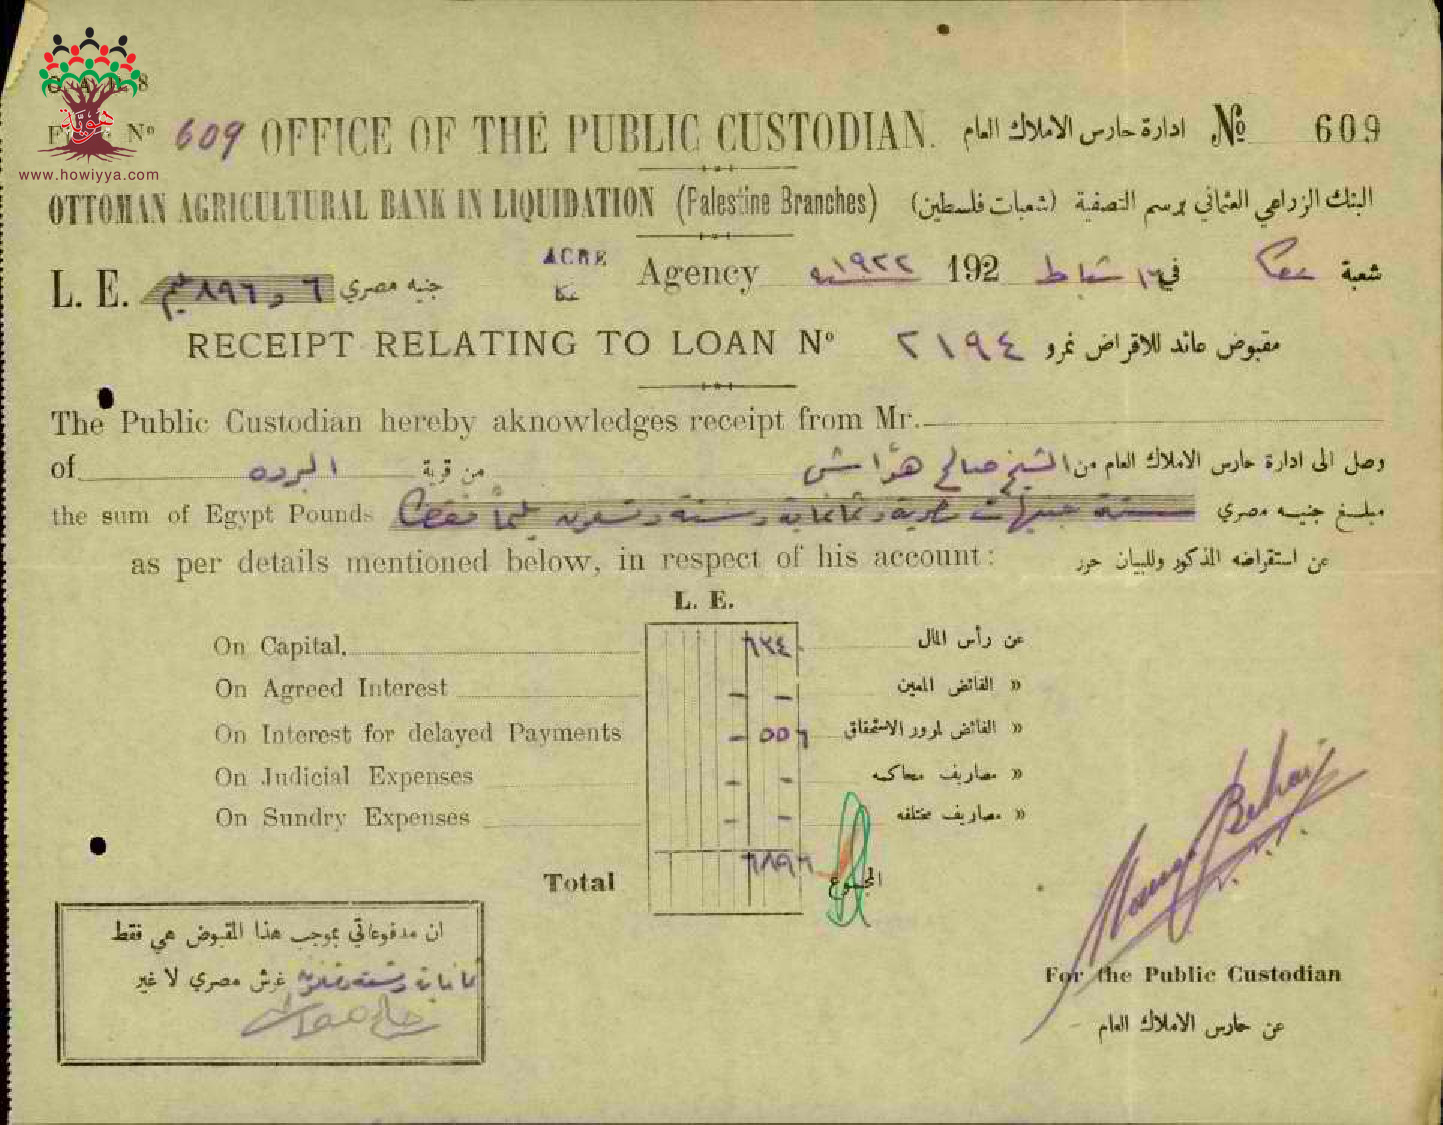 هوية
www.howiyya.com
Nº 609 OFFICE OF THE PUBLIC CUSTODIAN. ادارة حارس الاملاك العام Nº 609
OTTOMAN AGRICULTURAL BANK IN LIQUIDATION (Palestine Branches) البنك الزراعي العثماني برسم التصفية (شعبات فلسطين)
L. E. ٦ و ٨٩٦ مليم جنيه مصري ACRE عكا Agency ١٩٢٢ سنه 192 في ١٦ شباط عكا شعبة
RECEIPT RELATING TO LOAN Nº ٢١٩٤ مقبوض عائد للاقراض نمرو
The Public Custodian hereby aknowledges receipt from Mr.
of البروه من قرية الشيخ صالح هواش وصل الى ادارة حارس الاملاك العام من
the sum of Egypt Pounds ستة جنيهات مصرية وثمانماية وستة وتسعون مليماً فقط مبلغ جنيه مصري
as per details mentioned below, in respect of his account: عن استقراضه المذكور وللبيان حرر
L. E.
On Capital. ٦٣٤٠ عن رأس المال
On Agreed Interest – – » الفائض المعين
On Interest for delayed Payments – ٥٥٦ » الفائض لمرور الاستحقاق
On Judicial Expenses – – » مصاريف محاكمه
On Sundry Expenses – – » مصاريف مختلفه
Total ٦٨٩٦ المجموع
ان مدفوعاتي بموجب هذا المقبوض هي فقط
غرش مصري لا غير
صالح هواش
For the Public Custodian
عن حارس الاملاك العام